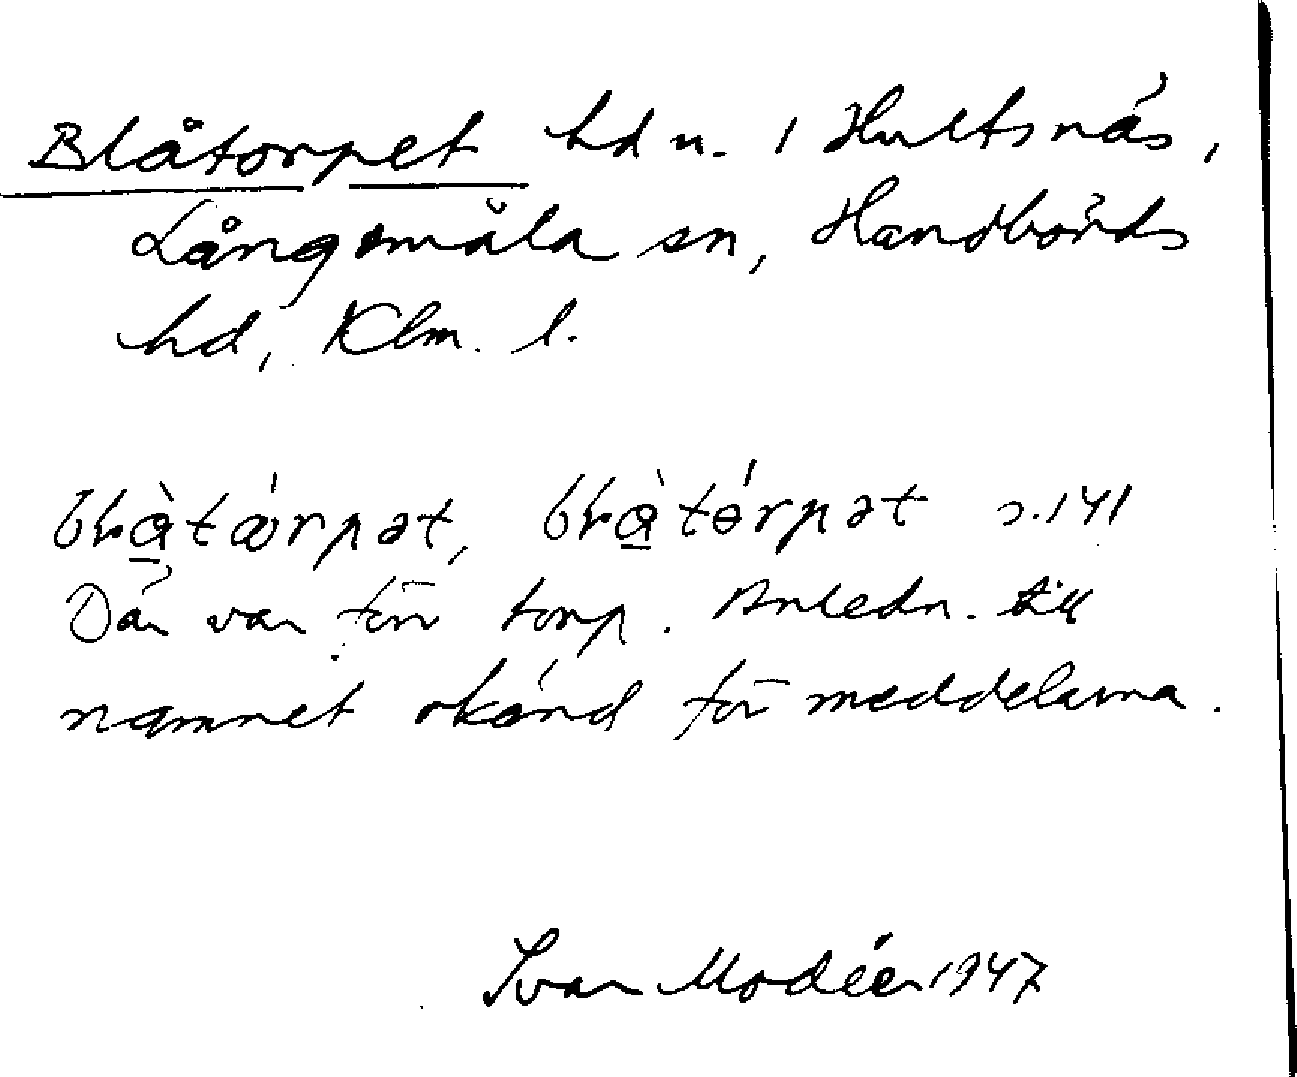 Blåtorpet hdn. i Hultsnäs,
Långemåla sn, Handbörds
hd, Klm. l.
s. 141
Där var förr torp. Anledn. till
namnet okänd för meddelarna.
Ivar Modéer 1947